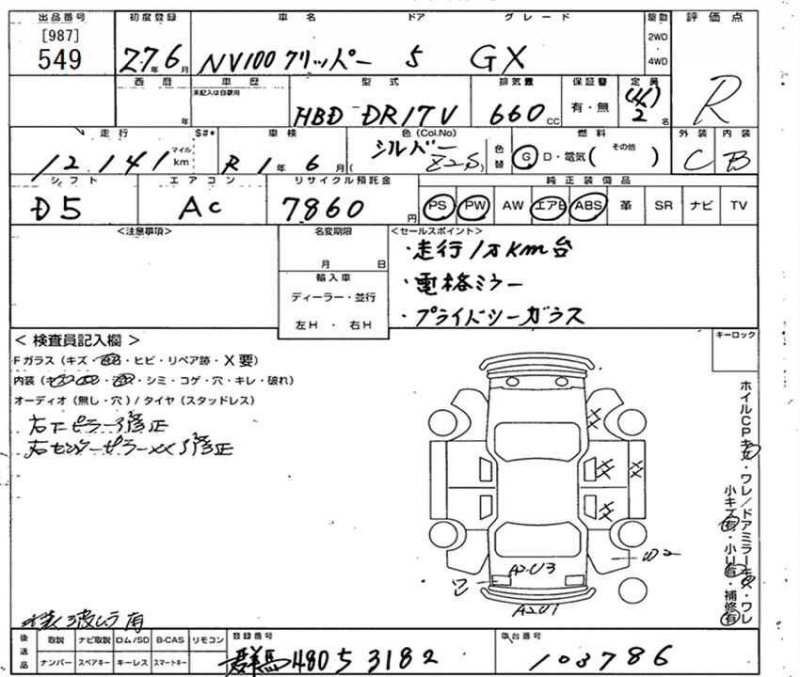 出品番号 初度登録 車名 ドア グレード 駆動 評価点
[987] 2WD
549 27年6月 NV100クリッパー 5 GX ・4WD R
西暦 車歴 型式 排気量 保証書 定員
年 未記入は自家用 HBD-DR17V 660CC 有・無 (4) 2名
走行 マイル km $#* 車検 色(Col.No) 色替 燃料 外装 内装
12,141 R1年6月( シルバー Z2S) G D・電気( その他 ) C B
シフト エアコン リサイクル預託金 純正装備品
D5 AC 7860円 PS PW AW エアB ABS 革 SR ナビ TV
<注意事項> 名変期限 <セールスポイント>
月 日 ・走行1万km台
輸入車 ・電格ミラー
ディーラー・並行 ・プライバシーガラス
左H・右H
< 検査員記入欄 > キーロック
Fガラス(キズ・・ヒビ・リペア跡・X要)
内装(・シミ・コゲ・穴・キレ・破れ)
オーディオ(無し・穴)/タイヤ(スタッドレス)
右Fピラー修正
右センターピラーXX修正
XX XX XX XX
A2U3
A2U1
U2
ホイルCPキズ・ワレ/ドアミラーキズ・ワレ
小キズ有・小U有・補修有
波しラ有
後送品 取説 ナビ取説 ロム/SD B-CAS リモコン 登録番号 車台番号
ナンバー スペアキー キーレス スマートキー 群馬 480 5 3182 103786